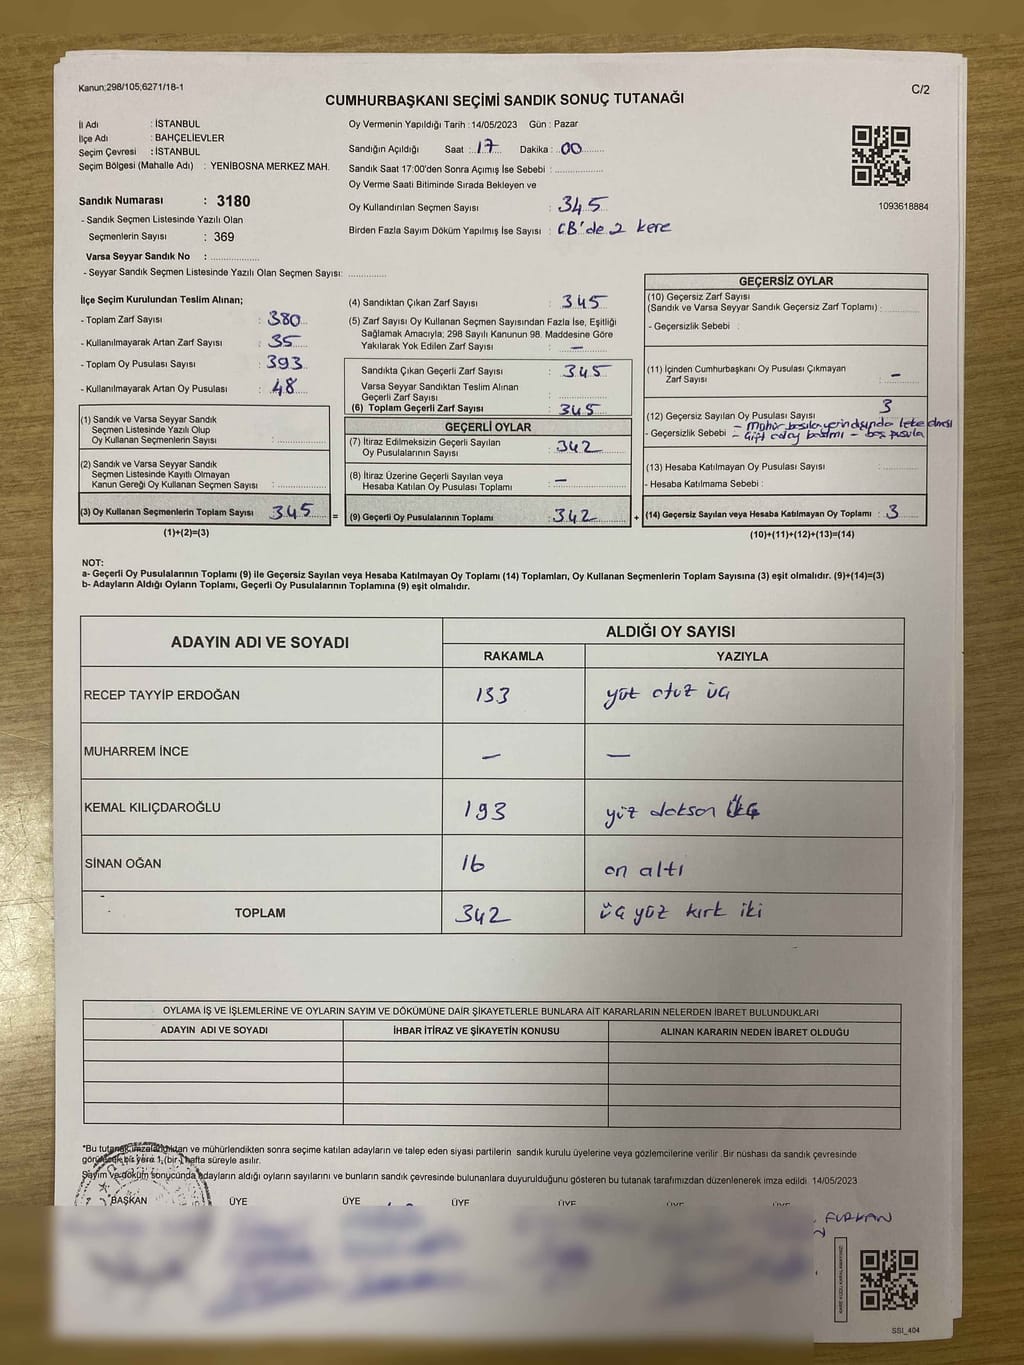 Kanun;298/105;6271/18-1
C/2
CUMHURBAŞKANI SEÇİMİ SANDIK SONUÇ TUTANAĞI
İl Adı : İSTANBUL
İlçe Adı : BAHÇELİEVLER
Seçim Çevresi : İSTANBUL
Seçim Bölgesi (Mahalle Adı) : YENİBOSNA MERKEZ MAH.
Sandık Numarası : 3180
- Sandık Seçmen Listesinde Yazılı Olan
Seçmenlerin Sayısı : 369
Varsa Seyyar Sandık No :
- Seyyar Sandık Seçmen Listesinde Yazılı Olan Seçmen Sayısı:
Oy Vermenin Yapıldığı Tarih : 14/05/2023 Gün : Pazar
Sandığın Açıldığı Saat : 17 Dakika : 00
Sandık Saat 17:00'den Sonra Açımış İse Sebebi :
Oy Verme Saati Bitiminde Sırada Bekleyen ve
Oy Kullandırılan Seçmen Sayısı : 345
Birden Fazla Sayım Döküm Yapılmış İse Sayısı : CB'de 2 kere
1093618884
İlçe Seçim Kurulundan Teslim Alınan;
- Toplam Zarf Sayısı : 380
- Kullanılmayarak Artan Zarf Sayısı : 35
- Toplam Oy Pusulası Sayısı : 393
- Kullanılmayarak Artan Oy Pusulası : 48
(1) Sandık ve Varsa Seyyar Sandık
Seçmen Listesinde Yazılı Olup
Oy Kullanan Seçmenlerin Sayısı :
(2) Sandık ve Varsa Seyyar Sandık
Seçmen Listesinde Kayıtlı Olmayan
Kanun Gereği Oy Kullanan Seçmen Sayısı :
(3) Oy Kullanan Seçmenlerin Toplam Sayısı 345 =
(1)+(2)=(3)
(4) Sandıktan Çıkan Zarf Sayısı : 345
(5) Zarf Sayısı Oy Kullanan Seçmen Sayısından Fazla İse, Eşitliği
Sağlamak Amacıyla; 298 Sayılı Kanunun 98. Maddesine Göre
Yakılarak Yok Edilen Zarf Sayısı : —
Sandıkta Çıkan Geçerli Zarf Sayısı : 345
Varsa Seyyar Sandıktan Teslim Alınan
Geçerli Zarf Sayısı :
(6) Toplam Geçerli Zarf Sayısı : 345
GEÇERLİ OYLAR
(7) İtiraz Edilmeksizin Geçerli Sayılan
Oy Pusulalarının Sayısı : 342
(8) İtiraz Üzerine Geçerli Sayılan veya
Hesaba Katılan Oy Pusulası Toplamı : —
(9) Geçerli Oy Pusulalarının Toplamı : 342 +
GEÇERSİZ OYLAR
(10) Geçersiz Zarf Sayısı
(Sandık ve Varsa Seyyar Sandık Geçersiz Zarf Toplamı) :
- Geçersizlik Sebebi :
(11) İçinden Cumhurbaşkanı Oy Pusulası Çıkmayan
Zarf Sayısı : -
(12) Geçersiz Sayılan Oy Pusulası Sayısı : 3
- Mühür basılan yerin dışında leke olması
- Geçersizlik Sebebi : - Çift aday basımı - boş pusula
(13) Hesaba Katılmayan Oy Pusulası Sayısı :
- Hesaba Katılmama Sebebi :
(14) Geçersiz Sayılan veya Hesaba Katılmayan Oy Toplamı : 3
(10)+(11)+(12)+(13)=(14)
NOT:
a- Geçerli Oy Pusulalarının Toplamı (9) ile Geçersiz Sayılan veya Hesaba Katılmayan Oy Toplamı (14) Toplamları, Oy Kullanan Seçmenlerin Toplam Sayısına (3) eşit olmalıdır. (9)+(14)=(3)
b- Adayların Aldığı Oyların Toplamı, Geçerli Oy Pusulalarının Toplamına (9) eşit olmalıdır.
ADAYIN ADI VE SOYADI
ALDIĞI OY SAYISI
RAKAMLA YAZIYLA
RECEP TAYYİP ERDOĞAN 133 yüz otuz üç
MUHARREM İNCE — —
KEMAL KILIÇDAROĞLU 193 yüz doksan üç
SİNAN OĞAN 16 on altı
TOPLAM 342 üç yüz kırk iki
OYLAMA İŞ VE İŞLEMLERİNE VE OYLARIN SAYIM VE DÖKÜMÜNE DAİR ŞİKAYETLERLE BUNLARA AİT KARARLARIN NELERDEN İBARET BULUNDUKLARI
ADAYIN ADI VE SOYADI İHBAR İTİRAZ VE ŞİKAYETİN KONUSU ALINAN KARARIN NEDEN İBARET OLDUĞU
*Bu tutanak imzalandıktan ve mühürlendikten sonra seçime katılan adayların ve talep eden siyasi partilerin sandık kurulu üyelerine veya gözlemcilerine verilir .Bir nüshası da sandık çevresinde
görülecek bir yere 1 (bir) hafta süreyle asılır.
Sayım ve döküm sonucunda adayların aldığı oyların sayılarını ve bunların sandık çevresinde bulunanlara duyurulduğunu gösteren bu tutanak tarafımızdan düzenlenerek imza edildi. 14/05/2023
BAŞKAN ÜYE ÜYE ÜYE ÜYE ÜYE ÜYE
FURKAN
SSI_404